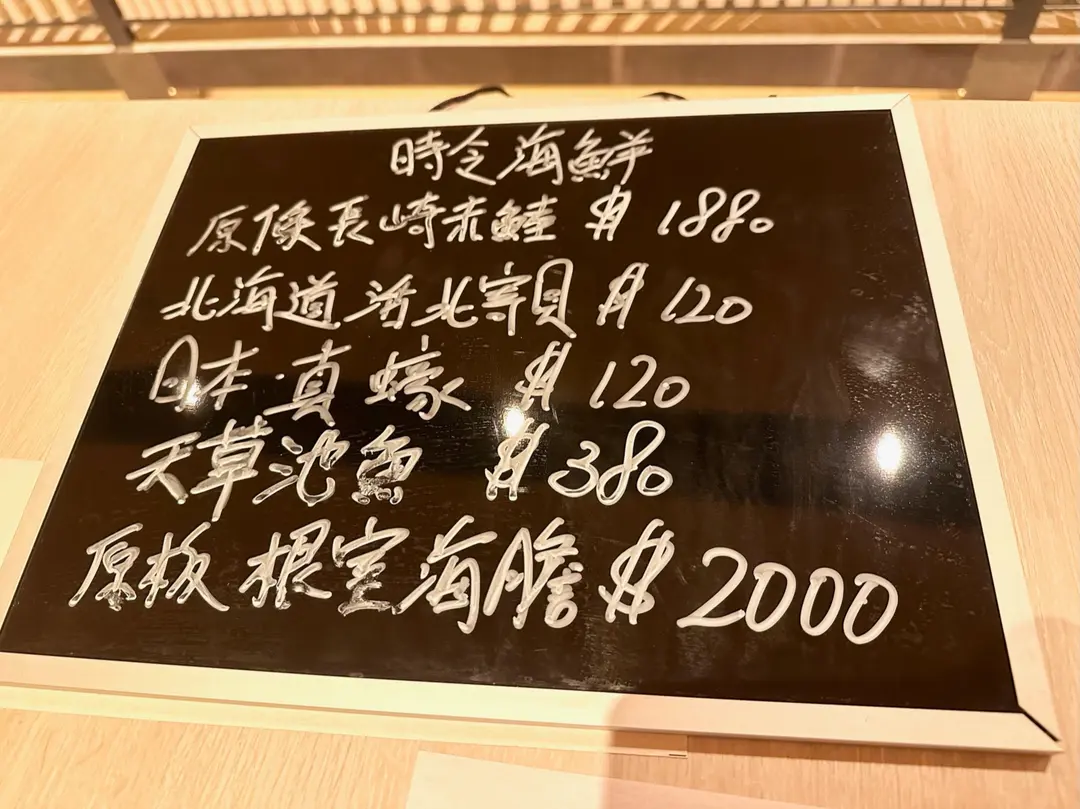 時令海鮮
原條長崎赤鯥 $ 1880
北海道活北寄貝 $ 120
日本真蠔 $ 120
天草池魚 $ 380
原板根室海膽 $ 2000